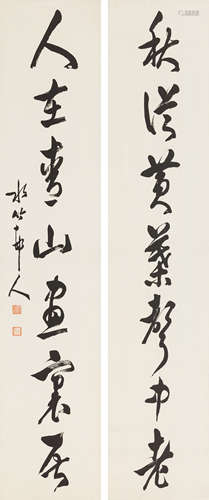 秋從黃葉聲中老
人在青山畫裏居
水竹邨人